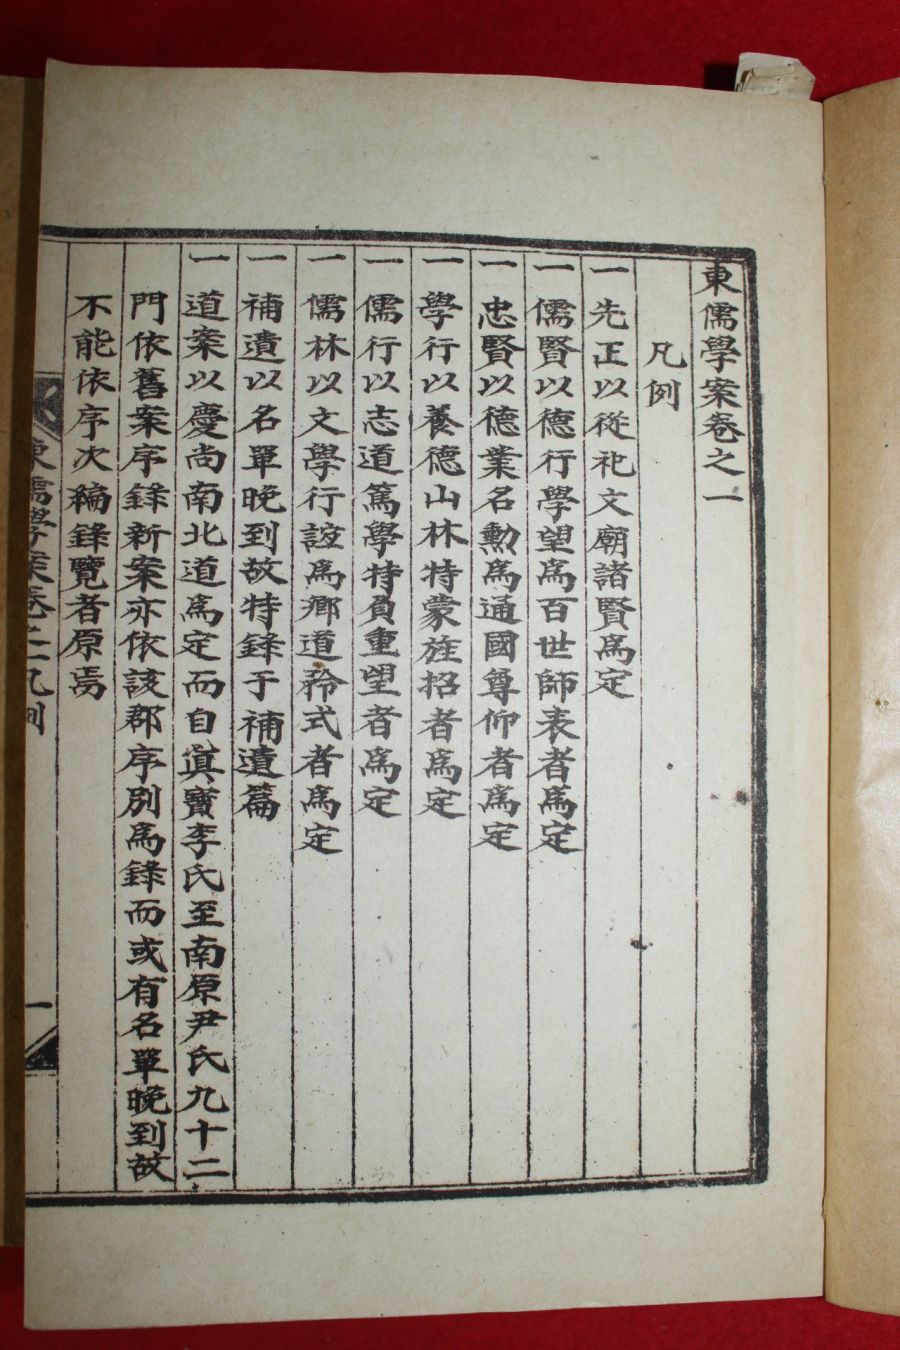 東儒學案卷之一
凡例
一先正以從祀文廟諸賢爲定
一儒賢以德行學望爲百世師表者爲定
一忠賢以德業名勳爲通國尊仰者爲定
一學行以養德山林特蒙旌招者爲定
一儒行以志道篤學特負重望者爲定
一儒林以文學行誼爲鄕道矜式者爲定
一補遺以名單晩到故特錄于補遺篇
一道案以慶尚南北道爲定而自眞寶李氏至南原尹氏九十二
門依舊案序錄新案亦依該郡序別爲錄而或有名單晩到故
不能依序次編錄覽者原焉
東儒學案卷之一凡例
一